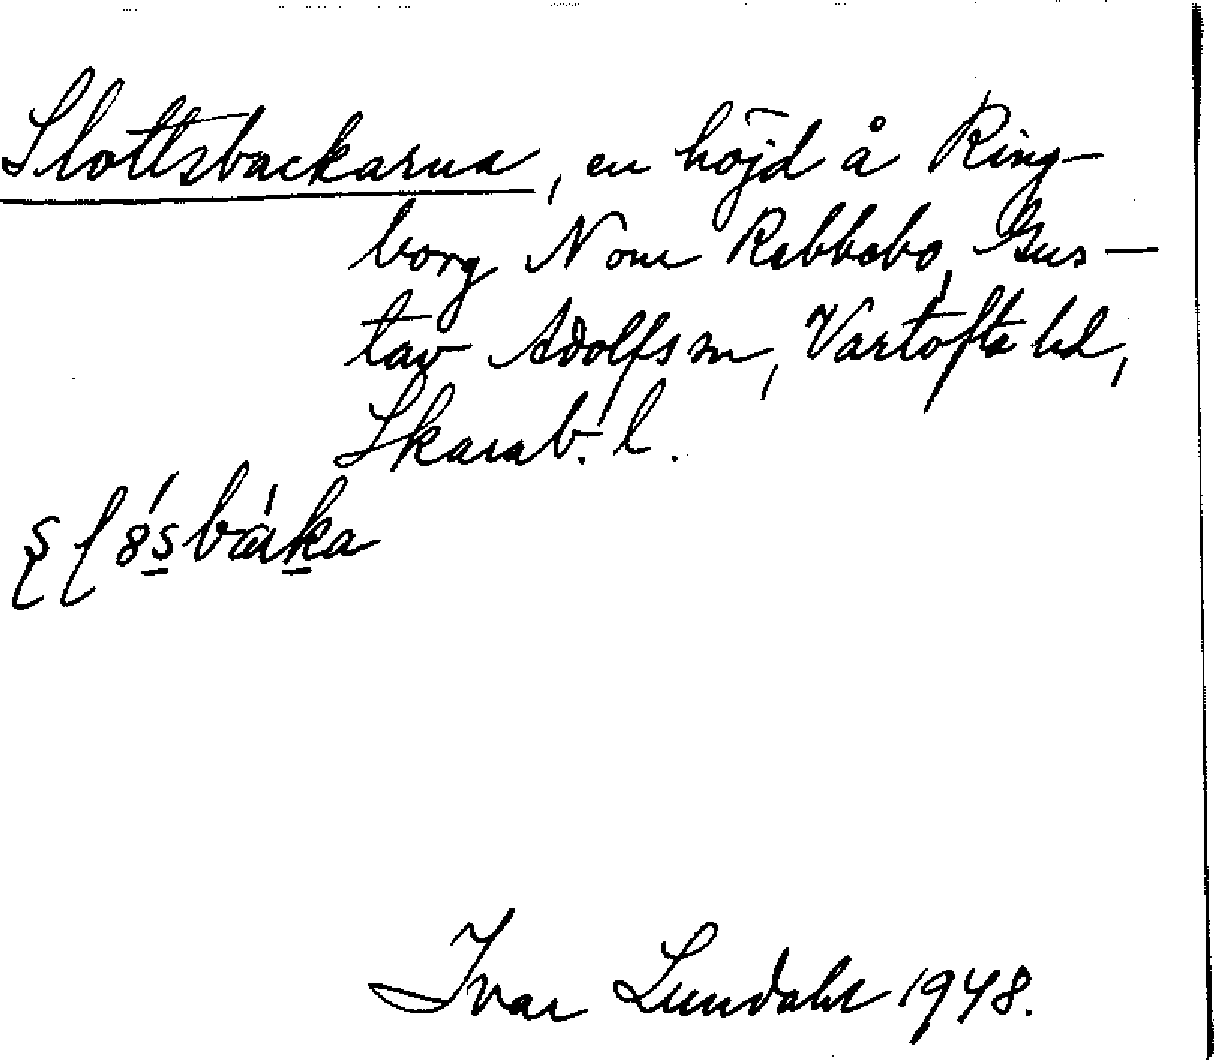 Slottsbackarna, en höjd å Ring-
borg N om Rebbebo, Gus-
tav Adolfs sn, Vartofta hd,
Skarab. l.
Ivar Lundahl 1948.